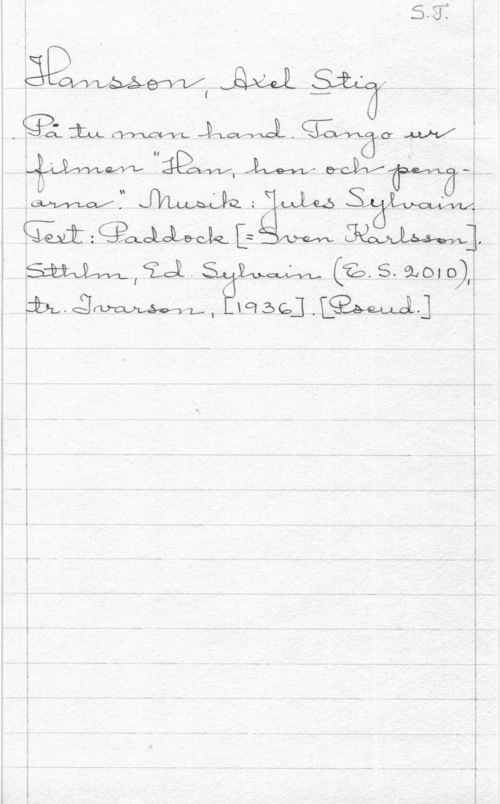 S.T.
Hansson, Axel Stig
På tu man hand. Tango ur
filmen "Han, hon och peng-
arna". Musik: Jules Sylvain.
Text: Paddock [= Sven Karlsson].
Sthlm, Ed. Sylvain (E. S. 2010),
tr. Ivarson, [1936]. [Pseud.]